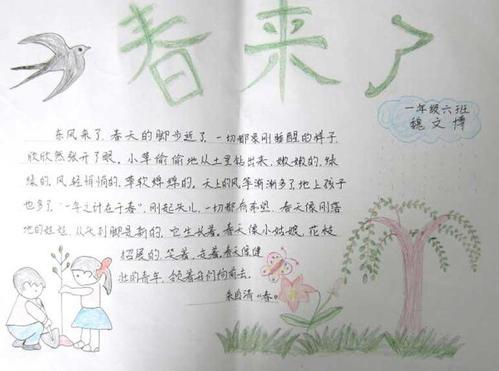 春来了
一年级六班
魏文博
东风来了，春天的脚步近了，一切都象刚睡醒的样子，
欣欣然张开了眼。小草偷偷地从土里钻出来，嫩嫩的，绿
绿的，风轻悄悄的，草软绵绵的，天上的风筝渐渐多了地上孩子
也多了，“一年之计在于春”，刚起头儿，一切都有希望，春天像刚落
地的娃娃，从头到脚是新的，它生长着，春天像小姑娘，花枝
招展的，笑着，走着，春天像健
壮的青年，领着我们向前去。
朱自清《春》